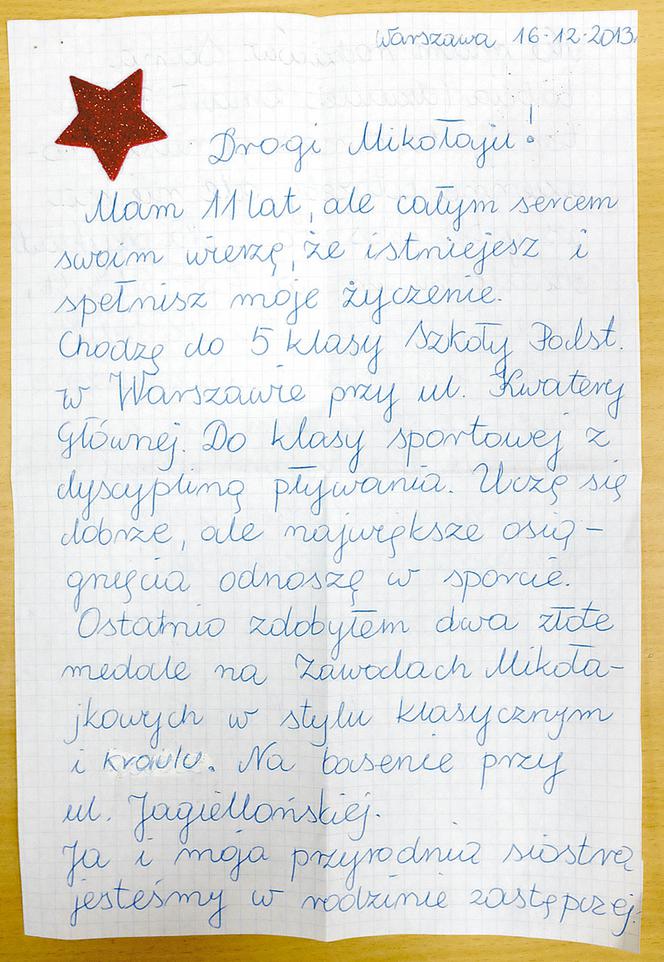 Warszawa 16.12.2013
Drogi Mikołaju!
Mam 11 lat, ale całym sercem
swoim wierzę, że istniejesz i
spełnisz moje życzenie.
Chodzę do 5 klasy Szkoły Podst.
w Warszawie przy ul. Kwatery
Głównej. Do klasy sportowej z
dyscypliną pływania. Uczę się
dobrze, ale największe osią-
gnięcia odnoszę w sporcie.
Ostatnio zdobyłem dwa złote
medale na Zawodach Mikoła-
jkowych w stylu klasycznym
i kraulu. Na basenie przy
ul. Jagiellońskiej.
Ja i moja przyrodnia siostra
jesteśmy w rodzinie zastępczej.